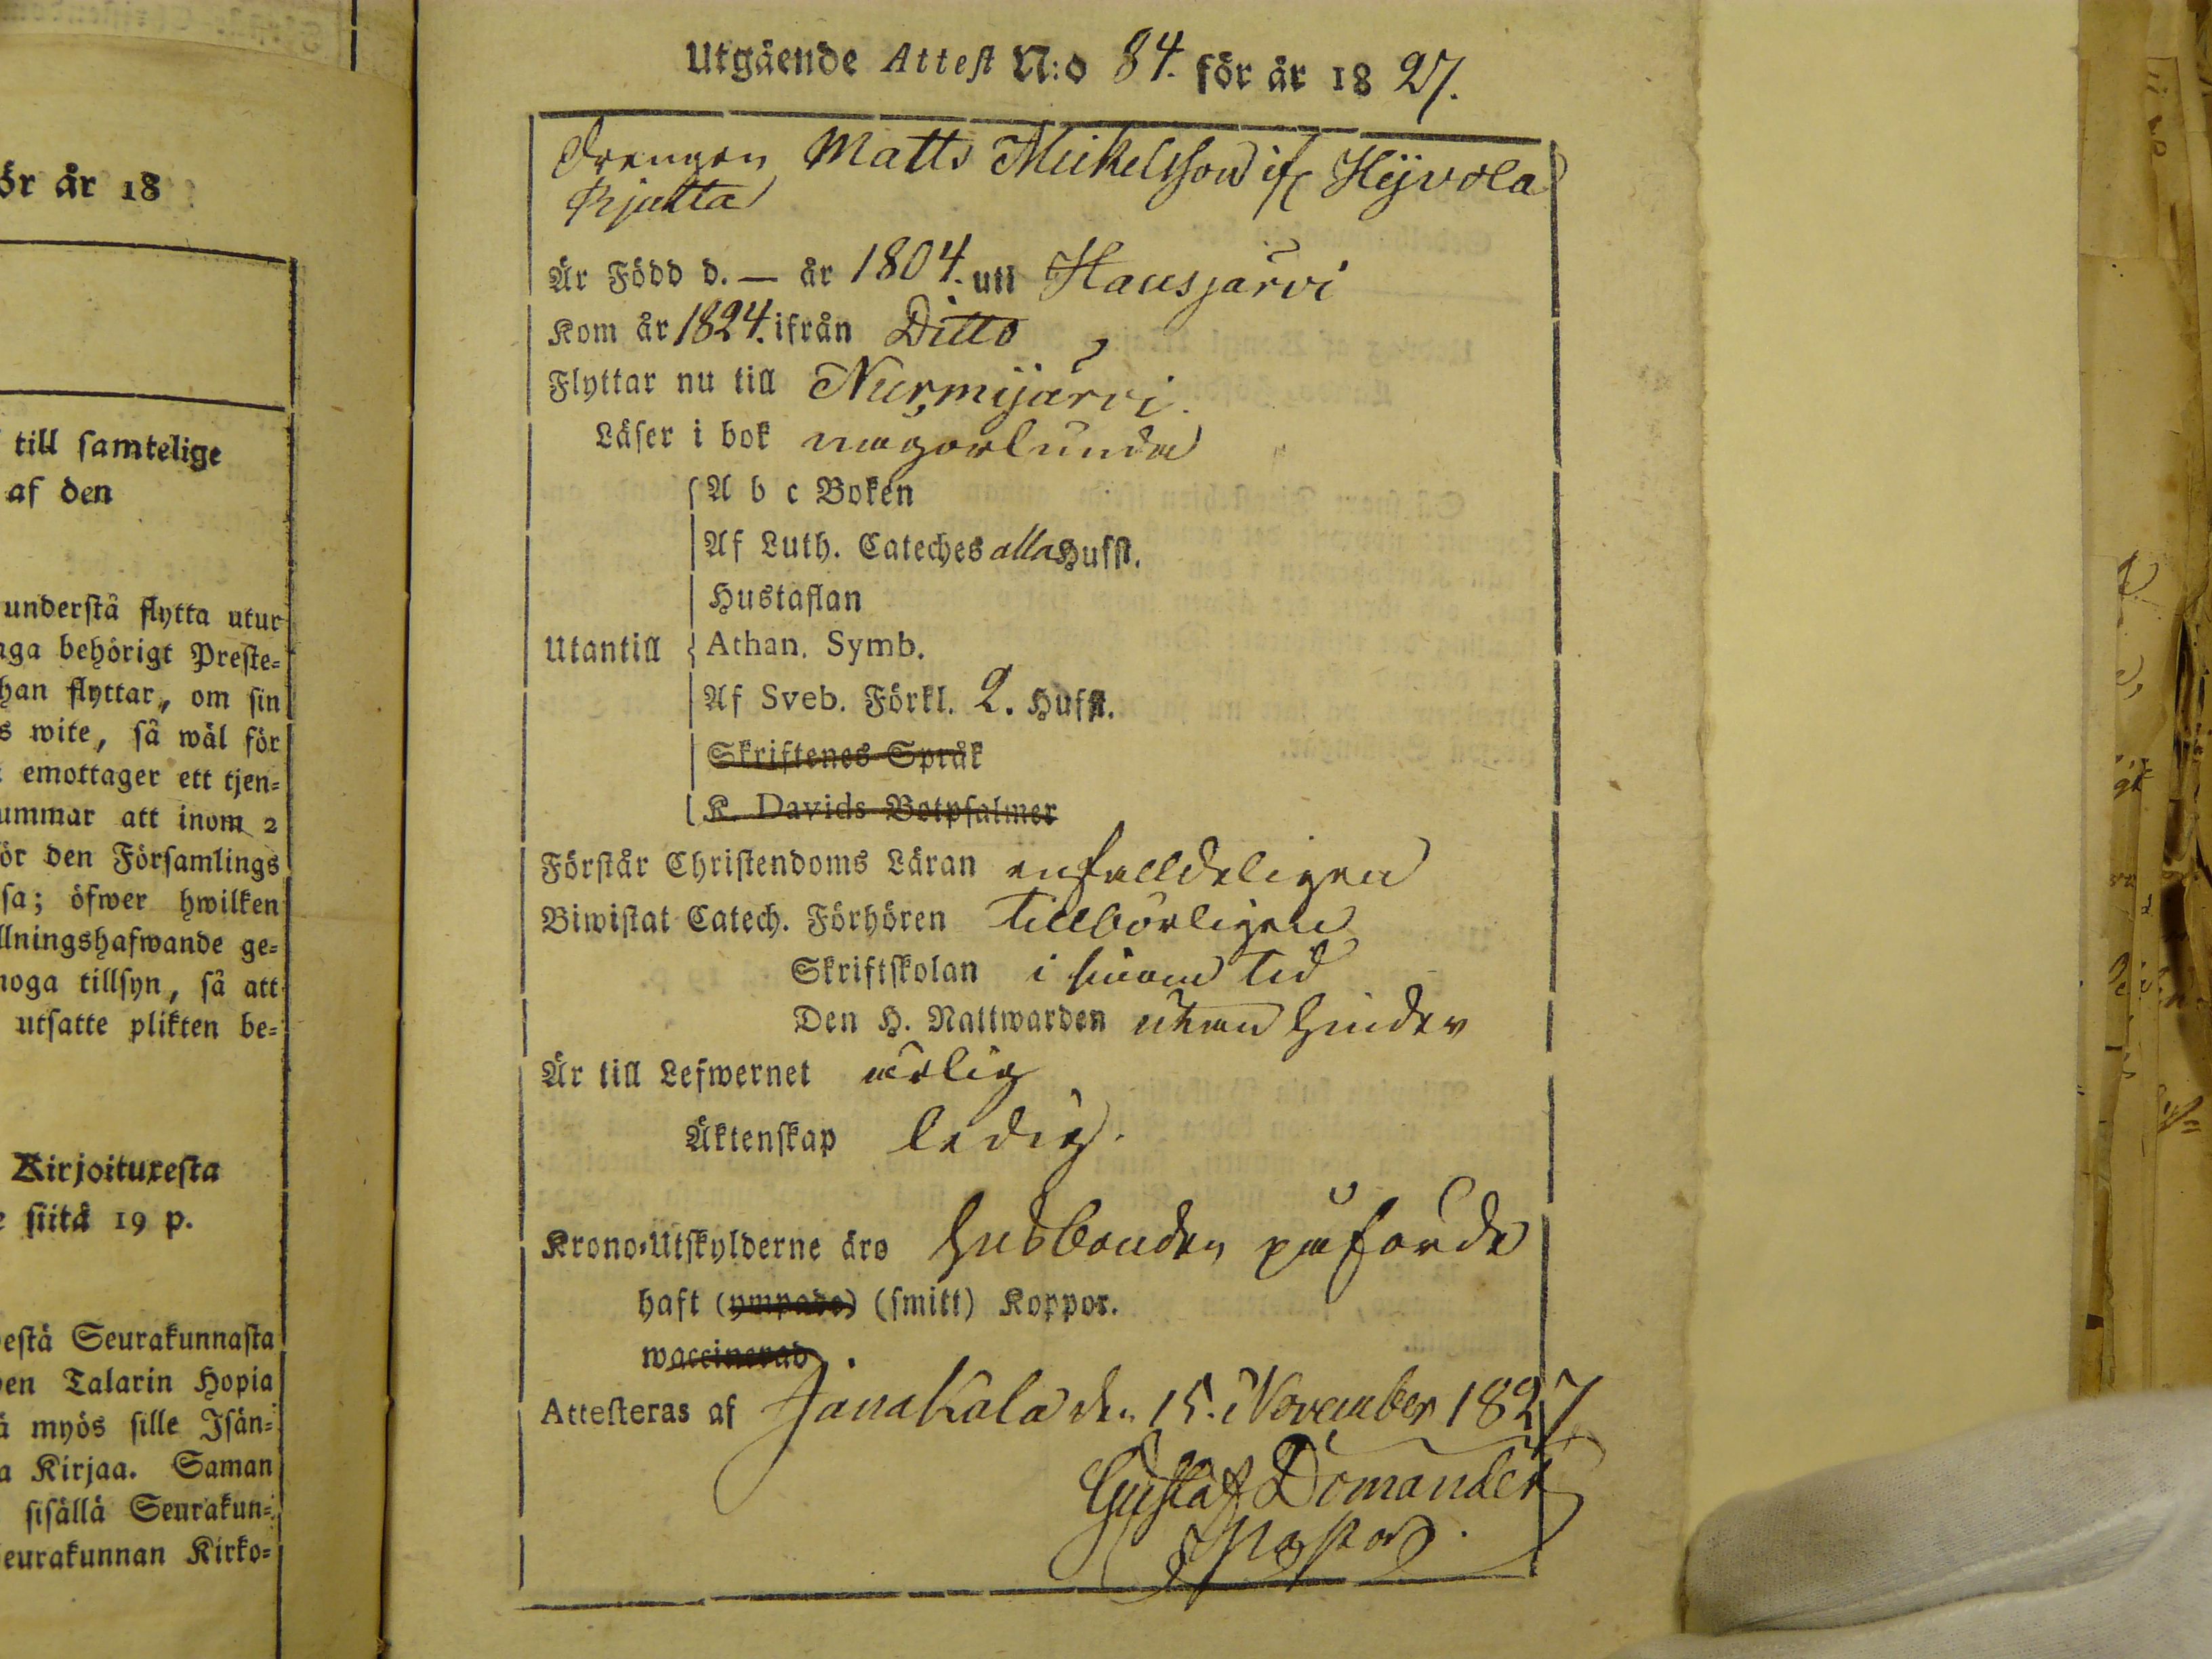 ör år 18
till samtelige
af den
understå flytta utur
aga behörigt Preste=
han flyttar, om sin
s wite, så wäl för
emottager ett tjen=
ummar att inom 2
ör den Församlings
sa; öfwer hwilken
llningshafwande ge=
noga tillsyn, så att
utsatte plikten be=
Kirjoituxesta
siitä 19 p.
estä Seurakunnasta
en Talarin Hopia
ä myös sille Isän=
a Kirjaa. Saman
sisällä Seurakun=
eurakunnan Kirko=
Utgående Attest N:o 84. för år 1827.
Drengen Matts Michelsson if Hyvola
Rjutta
Är Född d. — år 1804. uti Hausjärvi
Kom år 1824. ifrån Ditto
Flyttar nu till Nurmijärvi.
Läser i bok någorlunda
A b c Boken
Af Luth. Cateches alla Hufst.
Hustaflan
Utantill Athan. Symb.
Af Sveb. Förkl. 2. Hufst.
Skriftenes Språk
K. Davids Botpsalmer
Förstår Christendoms Läran enfalldeligen
Biwistat Catech. Förhören tillbörligen
Skriftskolan i sinom tid
Den H. Nattwarden utan hinder
Är till Lefwernet ärlig
Äktenskap ledig.
Krono=Utskylderne äro husbonden påförde
haft (ympade) (smitt) Koppor.
waccinerad .
Attesteras af Janakkala den 15. November 1827
Gustaf Domander
Pastor.